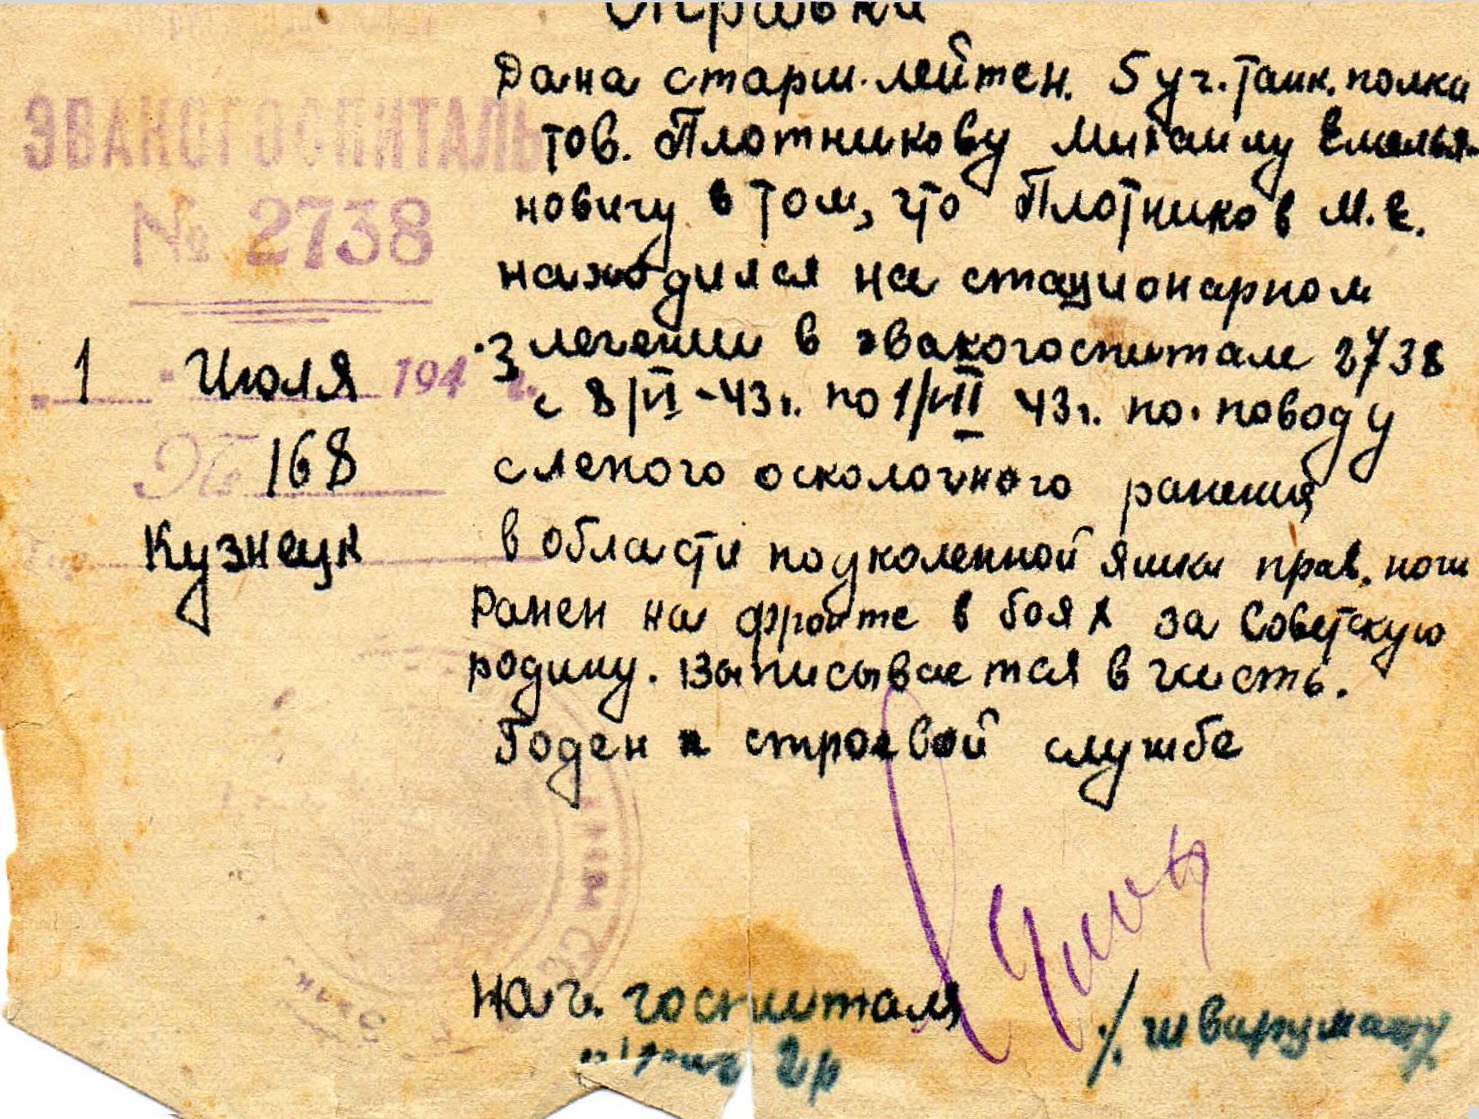 Справка
ЭВАКОГОСПИТАЛЬ
№ 2738
1 Июля 1943 г.
№ 168
Кузнецк
Дана старш. лейтен. 5 уч. танк. полка
тов. Плотникову Михаилу Емелья-
новичу в том, что Плотников М.Е.
находился на стационарном
лечении в эвакогоспитале 2738
с 8/VI-43г. по 1/VII 43г. по поводу
слепого осколочного ранения
в области подколенной ямки прав. ноги
Ранен на фронте в боях за Советскую
родину. Выписывается в часть.
Годен к строевой службе
Нач. госпиталя